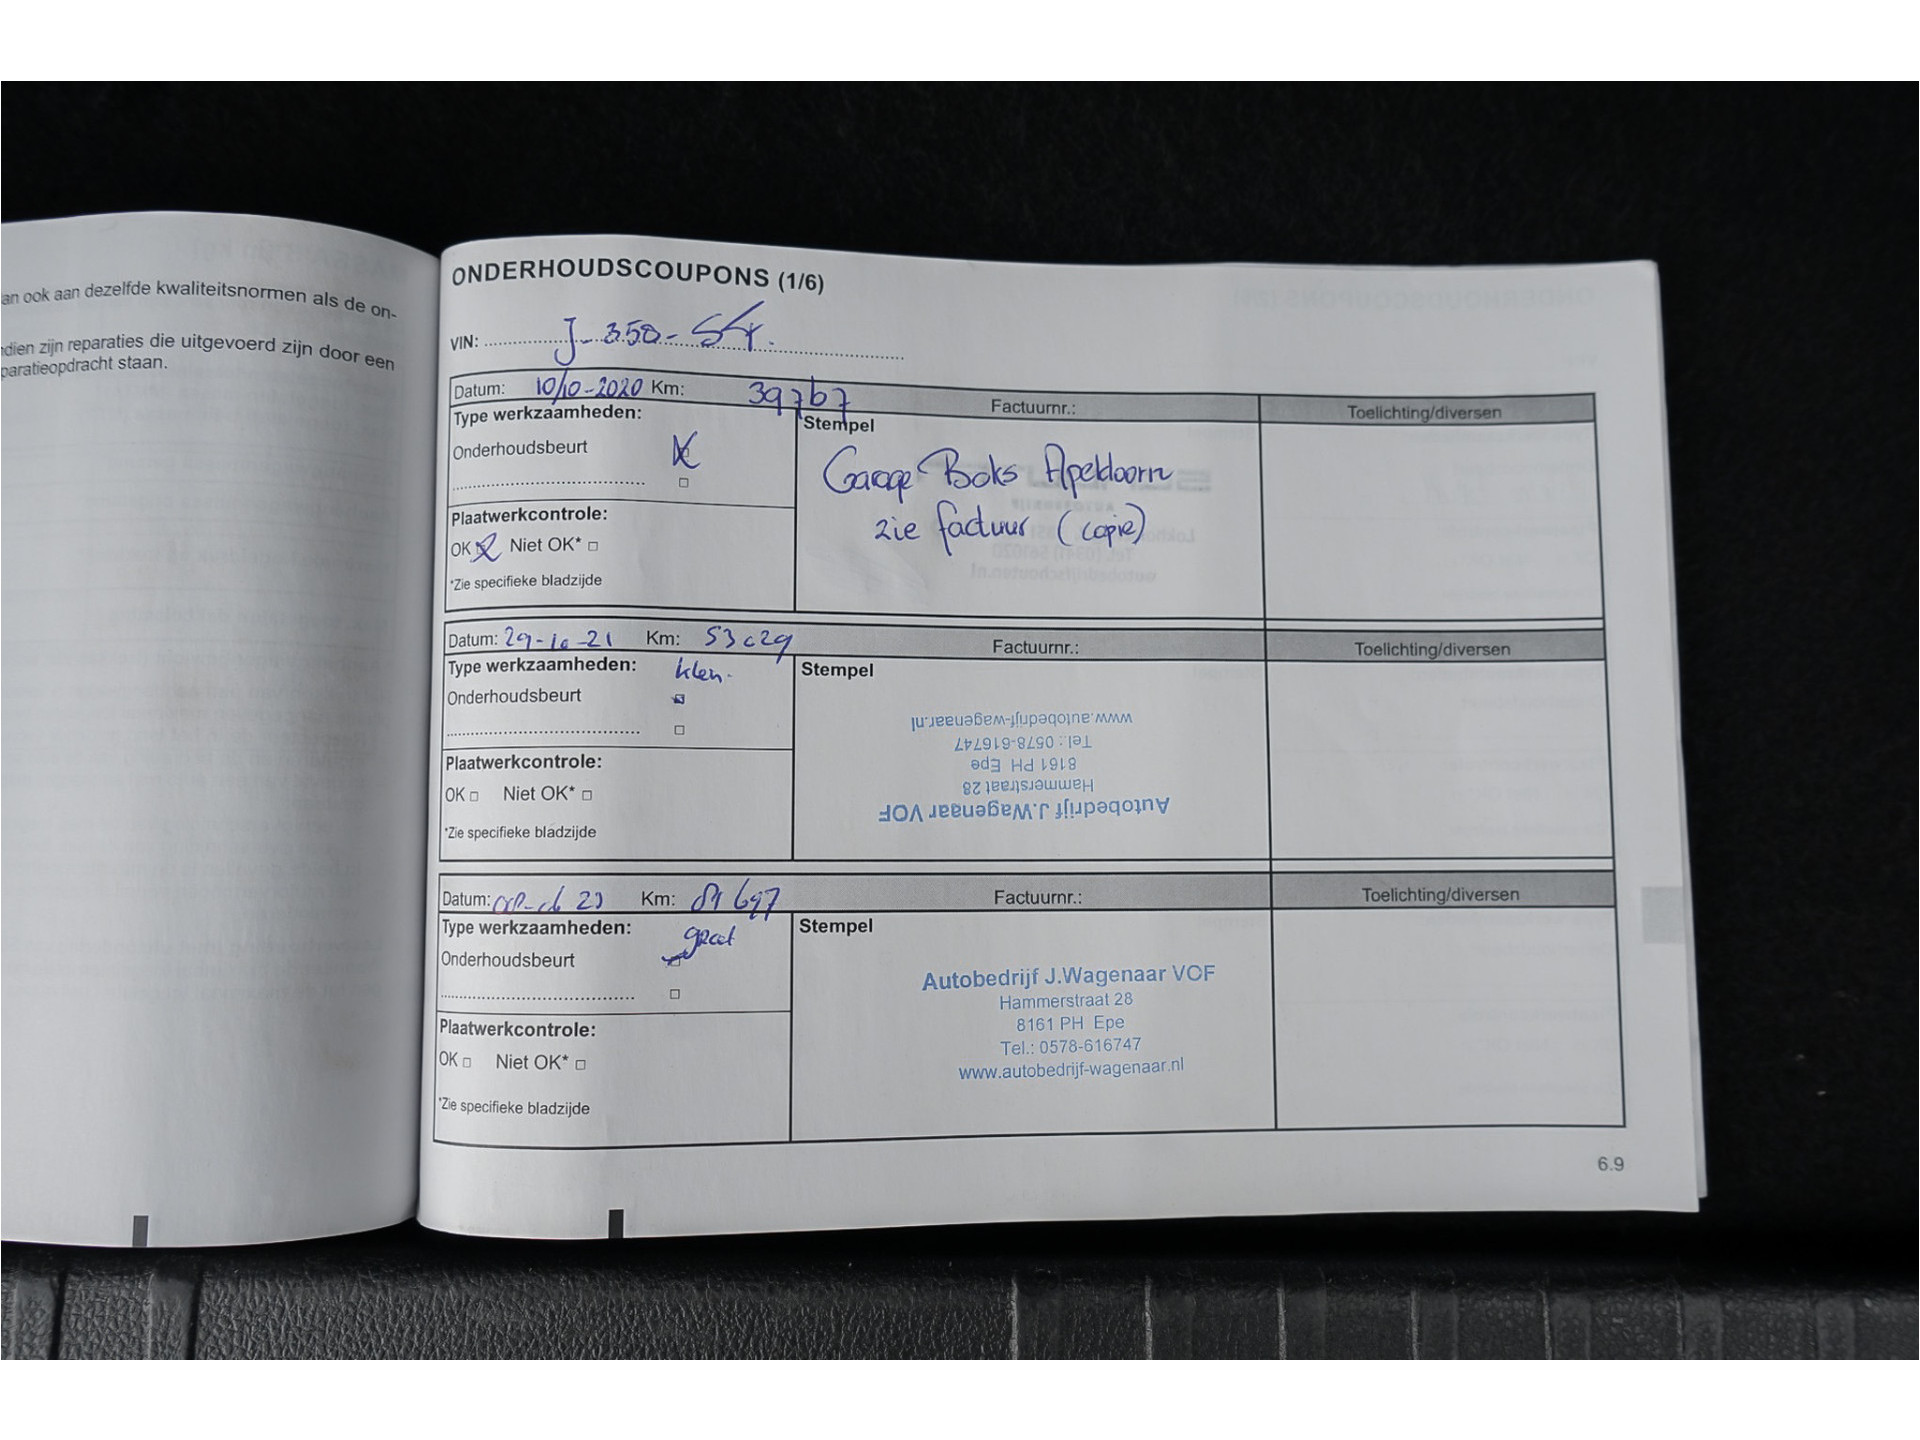 an ook aan dezelfde kwaliteitsnormen als de on-
dien zijn reparaties die uitgevoerd zijn door een
paratieopdracht staan.
ONDERHOUDSCOUPONS (1/6)
VIN: J-350-SX.
Datum: 10/10-2020 Km: 39767 Factuurnr.: Toelichting/diversen
Type werkzaamheden:
Stempel
Onderhoudsbeurt
Garage Boks Apeldoorn
zie factuur (copie)
Plaatwerkcontrole:
OK Niet OK*
*Zie specifieke bladzijde
Datum: 29-10-21 Km: 53029 Factuurnr.: Toelichting/diversen
Type werkzaamheden: klein
Stempel
Onderhoudsbeurt
Autobedrijf J.Wagenaar VOF
Hammerstraat 28
8161 PH Epe
Tel.: 0578-616747
www.autobedrijf-wagenaar.nl
Plaatwerkcontrole:
OK Niet OK*
*Zie specifieke bladzijde
Datum: 23 Km: 81697 Factuurnr.: Toelichting/diversen
Type werkzaamheden: groot
Stempel
Onderhoudsbeurt
Autobedrijf J.Wagenaar VOF
Hammerstraat 28
8161 PH Epe
Tel.: 0578-616747
www.autobedrijf-wagenaar.nl
Plaatwerkcontrole:
OK Niet OK*
*Zie specifieke bladzijde
6.9